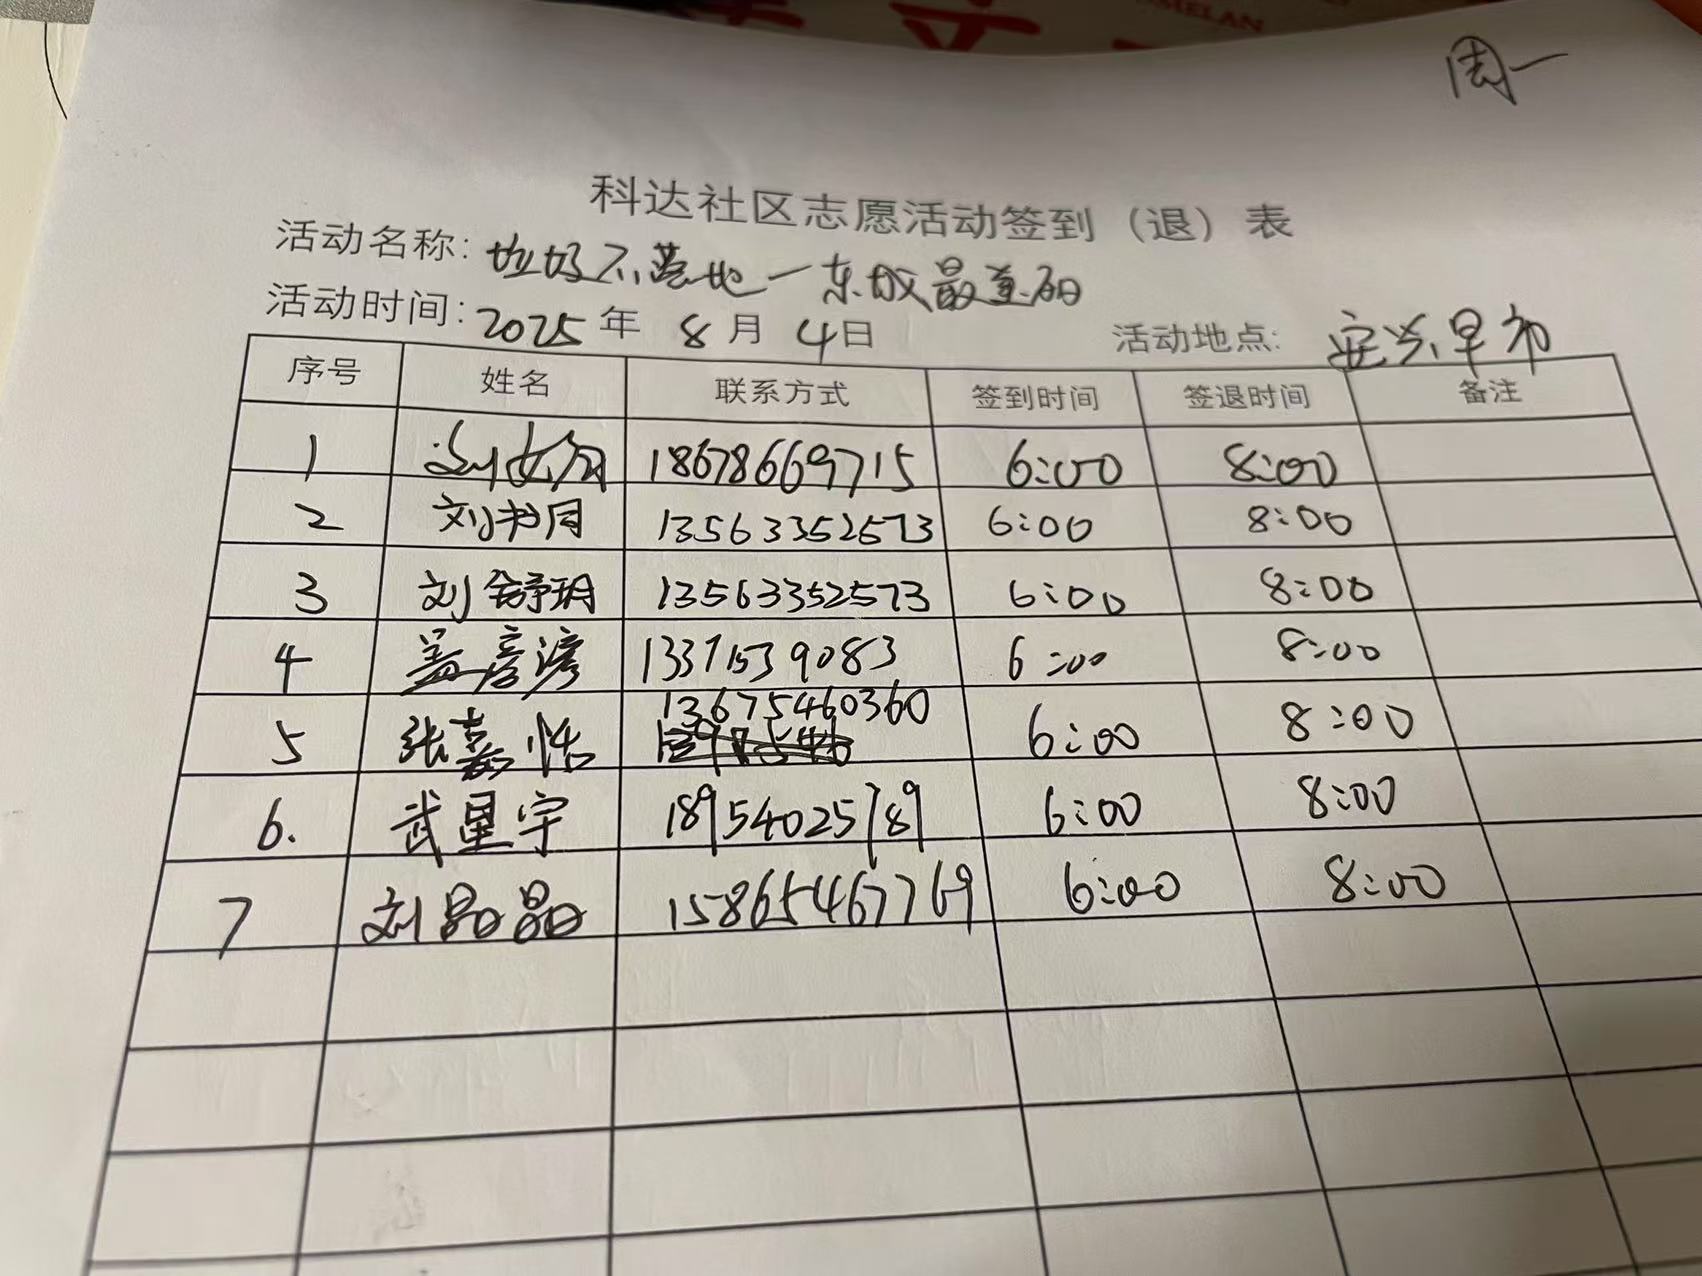 周一
科达社区志愿活动签到（退）表
活动名称: 垃圾不落地一东城最美丽
活动时间: 2025 年 8 月 4日 活动地点: 安兴早市
序号 姓名 联系方式 签到时间 签退时间 备注
1 刘 18678669715 6:00 8:00
2 刘书同 13563352573 6:00 8:00
3 刘舒玥 13563352573 6:00 8:00
4 盖彦澎 13371539083 6:00 8:00
5 张嘉恬 13675460360 6:00 8:00
6. 武星宇 18954025789 6:00 8:00
7 刘晶晶 15865467769 6:00 8:00